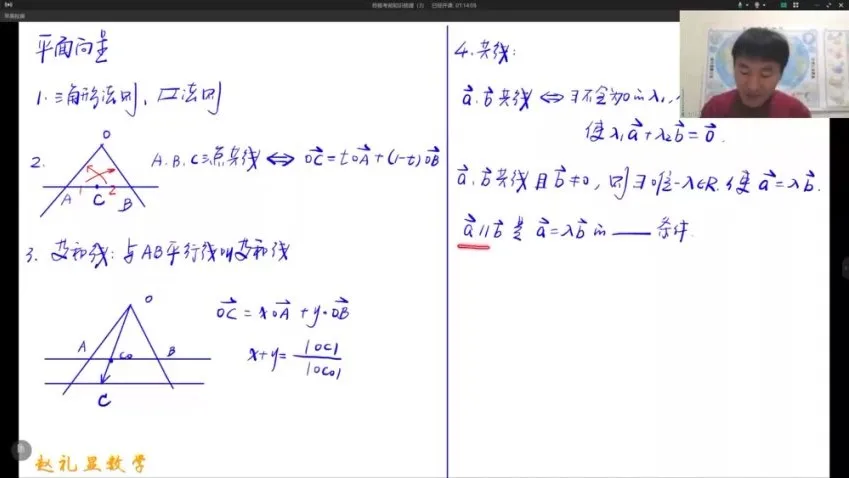 平面向量
1. 三角形法则、口法则
2.
O
A 1 C 2 B
A、B、C三点共线 ⇔ OC = tOA + (1-t)OB
3. 等和线: 与AB平行线叫等和线
O
A C0 B
C
OC = x·OA + y·OB
x+y = |OC| / |OC0|
赵礼显数学
4. 共线:
a、b共线 ⇔ ∃不全为0的λ1,
使λ1a + λ2b = 0.
a、b共线且b≠0, 则∃唯一λ∈R. 使a = λb.
a∥b是a=λb的____条件.